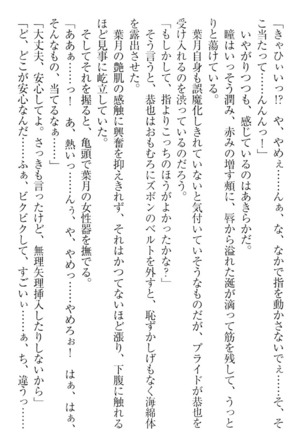 「きゃひぃいっ!?　や、やめぇ……んぁ、な、なかで指を動かさないで……そ、そ
こ当たって……んんんっ！」
いやがりつつも、感じているのはあきらかだ。
瞳はいっそう潤み、赤みの増す頬に、唇から溢れた涎が滴って筋を残して、うっと
りと蕩けている。
葉月自身も誤魔化しきれていないと気付いていそうなものだが、プライドが恭也を
受け入れるのを渋っているのだろう。
「もしかして、指よりこっちのほうがよかったかな？」
そう言うと、恭也はおもむろにズボンのベルトを外すと、恥ずかしげもなく海綿体
を露出させた。
葉月の艶肌の感触に興奮を抑えきれず、それはかつてないほど漲り、下腹に触れる
ほど見事に屹立していた。
そしてそれを握ると、亀頭で葉月の女性器を撫でる。
「ああぁ……っ！　あ、熱いっ……んぅ、や、やめっ……やめろぉ！　はぁ、はぁ、
そんなもの、当てるなぁ……」
「大丈夫、安心してよ。さっきも言ったけど、無理矢理挿入したりしないから」
「ど、どこが安心なんだ……ふぁ、ビクビクして、すごいぃ……ぁ、ち、違うっ……